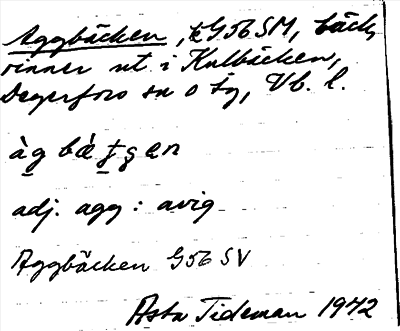 Aggbäcken, G56 SM, bäck,
rinner ut i Kulbäcken,
Degerfors sn o tg, Vb. l.
àg bä̀ ʈʂən
adj. agg: avig
Aggbäcken G56 SV
Asta Tideman 1942